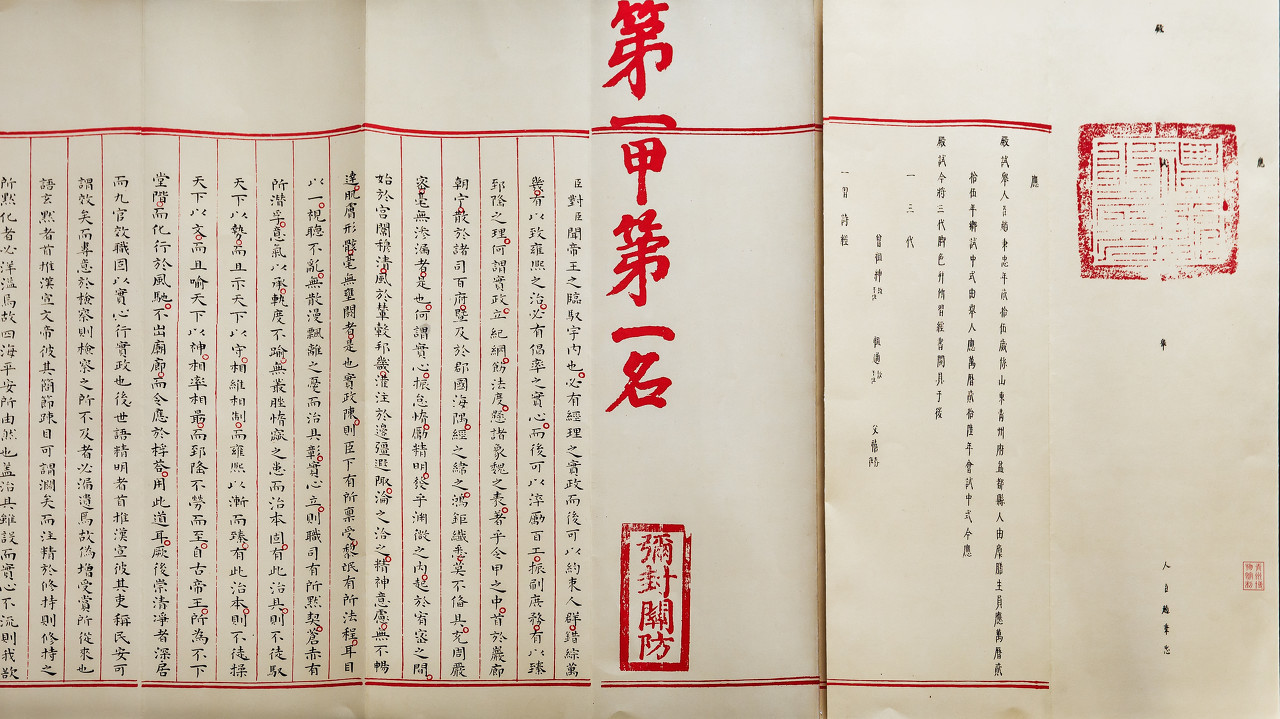 應
殿
試
舉
人臣趙秉忠
應
殿試舉人臣趙秉忠年貳拾伍歲係山東青州府益都縣人由廩膳生員應萬曆貳
拾伍年鄉試中式由舉人應萬曆貳拾陸年會試中式今應
殿試今將三代脚色并所習經書開具于後
一三代
曾祖 祖 父
一習詩經
第一甲第一名
彌封關防
臣對臣聞帝王之臨馭宇內也必有經理之實政而後可以約束人群錯綜萬
幾有以致雍熙之治必有倡率之實心而後可以淬勵百工振刷庶務有以臻
郅隆之理何謂實政立紀綱飭法度懸諸象魏之表著乎令甲之中首於巖廊
朝宁散於諸司百府暨及於郡國海隅經之緯之鴻鉅纖悉莫不備具充周嚴
密毫無滲漏者是也何謂實心振怠惰勵精明發乎淵微之內起於宥密之間
始於宮闈穆清風於輦轂邦畿灌注於邊疆遐陬淪之洽之精神意慮無不暢
達肌膚形骸毫無壅閼者是也實政陳則臣下有所稟受黎氓有所法程耳目
以一視聽不亂無散漫飄離之憂而治具彰實心立則職司有所默契蒼赤有
所潛孚意氣以承軌度不踰無叢脞惰窳之患而治本固有此治具則不徒馭
天下以勢而且示天下以守相維相制而雍熙以漸而臻有此治本則不徒操
天下以文而且喻天下以神相率相最而郅隆不勞而至自古帝王所為不下
堂階而化行於風馳不出廟廊而令應於桴荅用此道耳厥後崇清凈者深居
而九官效職固以實心行實政也後世語精明者首推漢宣彼其吏稱民安可
謂效矣而專意於檢察則檢察之所不及者必漏遺焉故偽增受賞所從來也
語玄默者首推漢宣文帝彼其簡節疎目可謂濶矣而注精於修持則修持之
所默化者必洋溫焉故四海平安所由然也盖治具雖設而實心不流則我欲